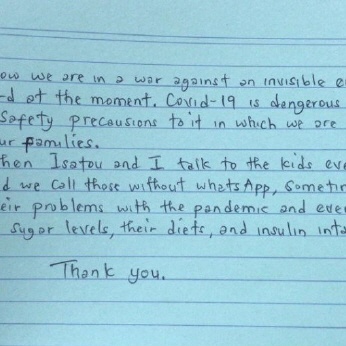 ow we are in a war against an invisible e
d at the moment. Covid-19 is dangerous
safety precausions to it in which we are
ur families.
hen Isatou and I talk to the kids eve
d we call those without whatsApp, sometim
eir problems with the pandemic and eve
sugar levels, their diets, and insulin inta
Thank you.